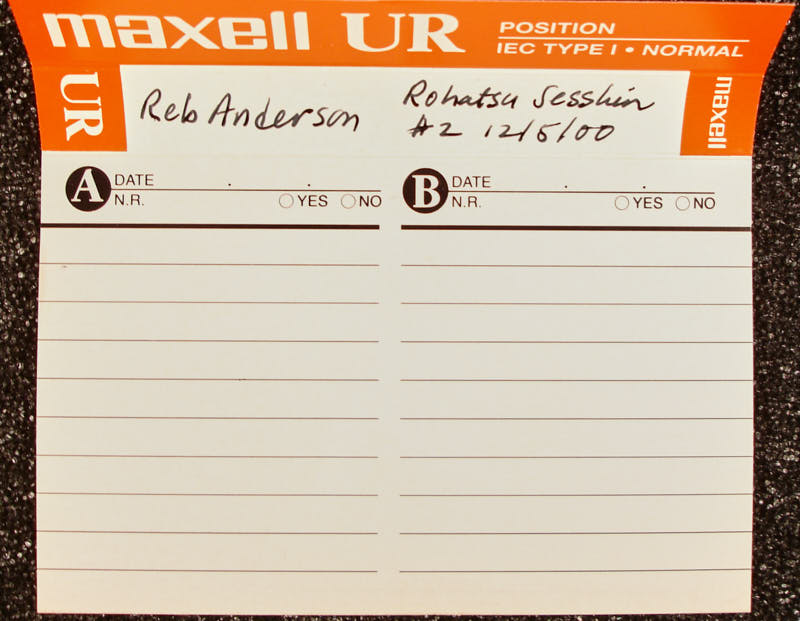 maxell UR
POSITION
IEC TYPE I • NORMAL
UR
Reb Anderson
Rohatsu Sesshin
#2 12/5/00
maxell
A DATE . .
N.R. YES NO
B DATE . .
N.R. YES NO